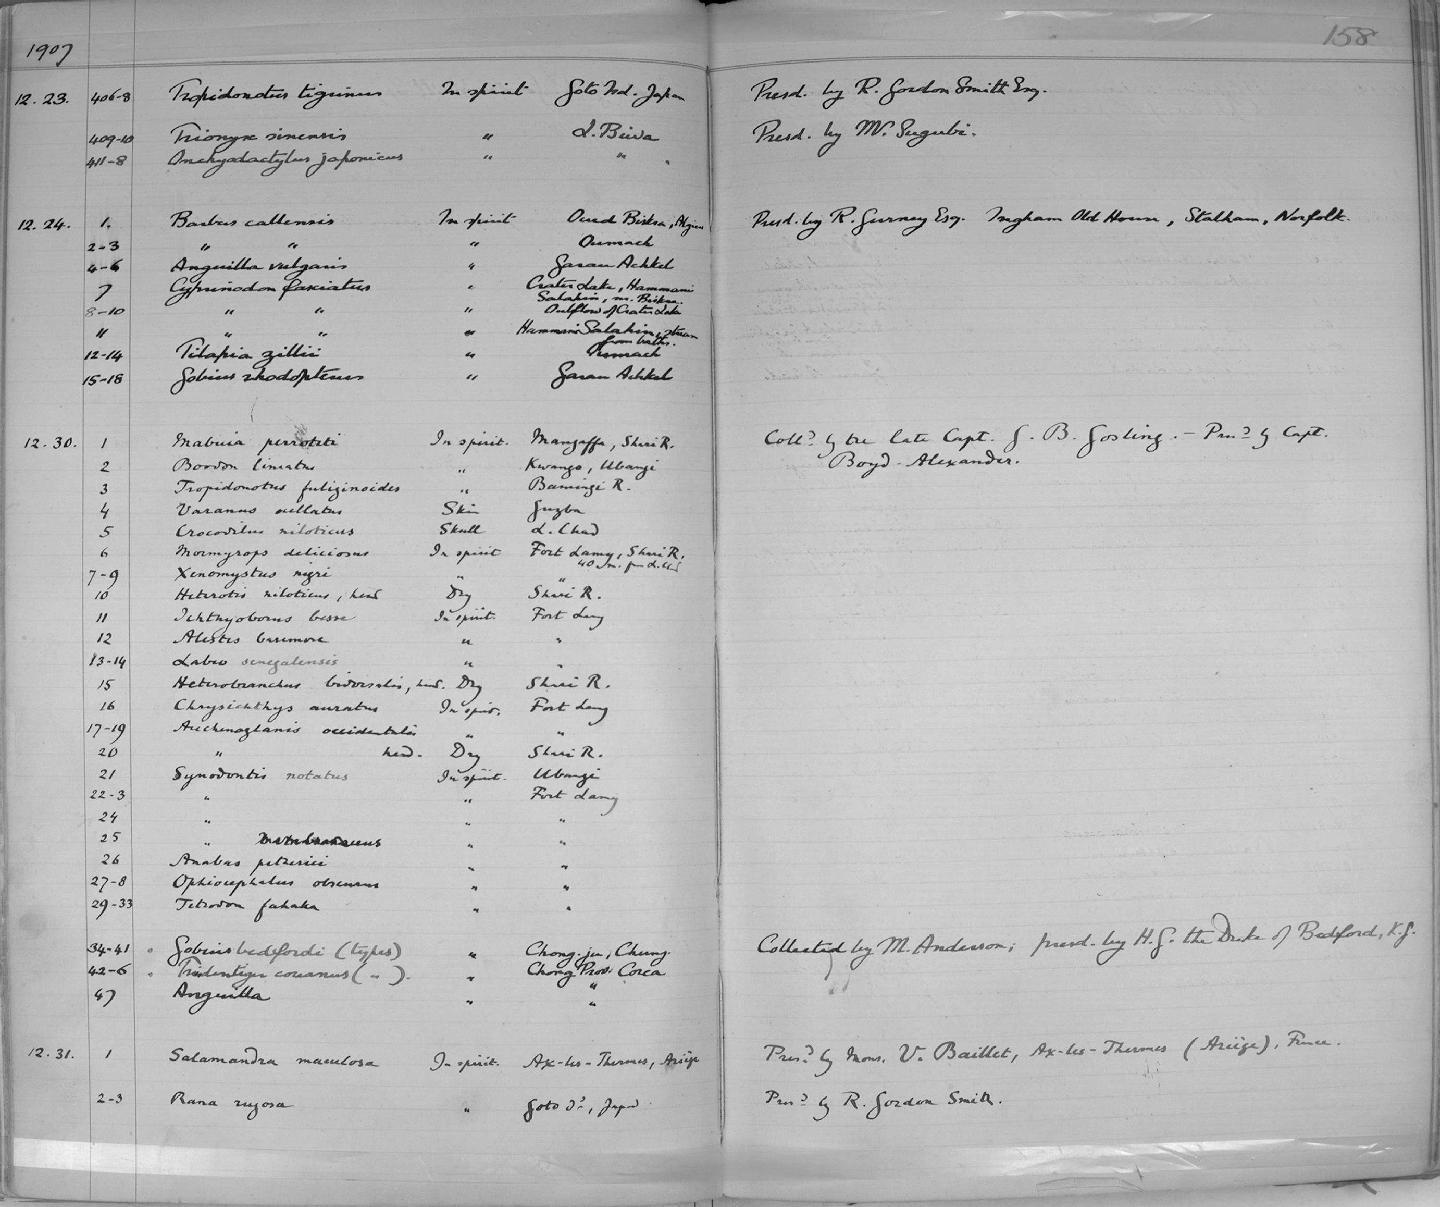 1907
158
12.23. 406-8 Tropidonotus tigrinus In spirit Goto Isd. Japan Presd. by R. Gordon Smith Esq.
409-10 Trionyx sinensis " L. Biwa Presd. by Mr. Sugubi.
411-8 Onchydactylus japonicus " "
12.24. 1. Barbus callensis In spirit Oued Biskra, Algiers Presd. by R. Gurney Esq. Ingham Old House, Stalham, Norfolk.
2-3 " " " Oumach
4-6 Anguilla vulgaris " Garau Achkel
7 Cyprinodon fasciatus " Crater Lake, Hammam
Salahin, nr. Biskra.
8-10 " " " Outflow of Crater Lake
11 " " " Hammam Salahin, stream
from baths.
12-14 Tilapia zillii " Oumach
15-18 Gobius rhodopterus " Garau Achkel
12.30. 1 Mabuia perroteti In spirit. Mangaffa, Shari R. Colld. by the late Capt. G. B. Gosling. – Presd. by Capt.
Boyd Alexander.
2 Boodon lineatus " Kwango, Ubangi
3 Tropidonotus fuliginoides " Bamingi R.
4 Varanus ocellatus Skin Guzba
5 Crocodilus niloticus Skull L. Chad
6 Mormyrops deliciosus In spirit Fort Lamy, Shari R.
40 m. fm L. Chad
7-9 Xenomystus nigri " "
10 Heterotis niloticus, head Dry Shari R.
11 Ichthyoborus besse In spirit. Fort Lamy
12 Alestes baremose " "
13-14 Labeo senegalensis " "
15 Heterobranchus bidorsalis, head. Dry Shari R.
16 Chrysichthys auratus In spir. Fort Lamy
17-19 Auchenoglanis occidentalis " "
20 " head. Dry Shari R.
21 Synodontis notatus In spirit. Ubangi
22-3 " " Fort Lamy
24 " " "
25 " membranaceus " "
26 Anabas petherici " "
27-8 Ophiocephalus obscurus " "
29-33 Tetrodon fahaka " "
34-41 Gobius bedfordi (types) " Chong-ju, Chung- Collected by M. Anderson; presd. by H.G. the Duke of Bedford, K.G.
42-6 Tridentiger coreanus ( " ). " Chong Prov. Corea
47 Anguilla " "
12.31. 1 Salamandra maculosa In spirit. Ax-les-Thermes, Ariège Presd. by Mons. V. Baillet, Ax-les-Thermes (Ariège), France.
2-3 Rana rugosa " Goto Id., Japan Presd. by R. Gordon Smith.